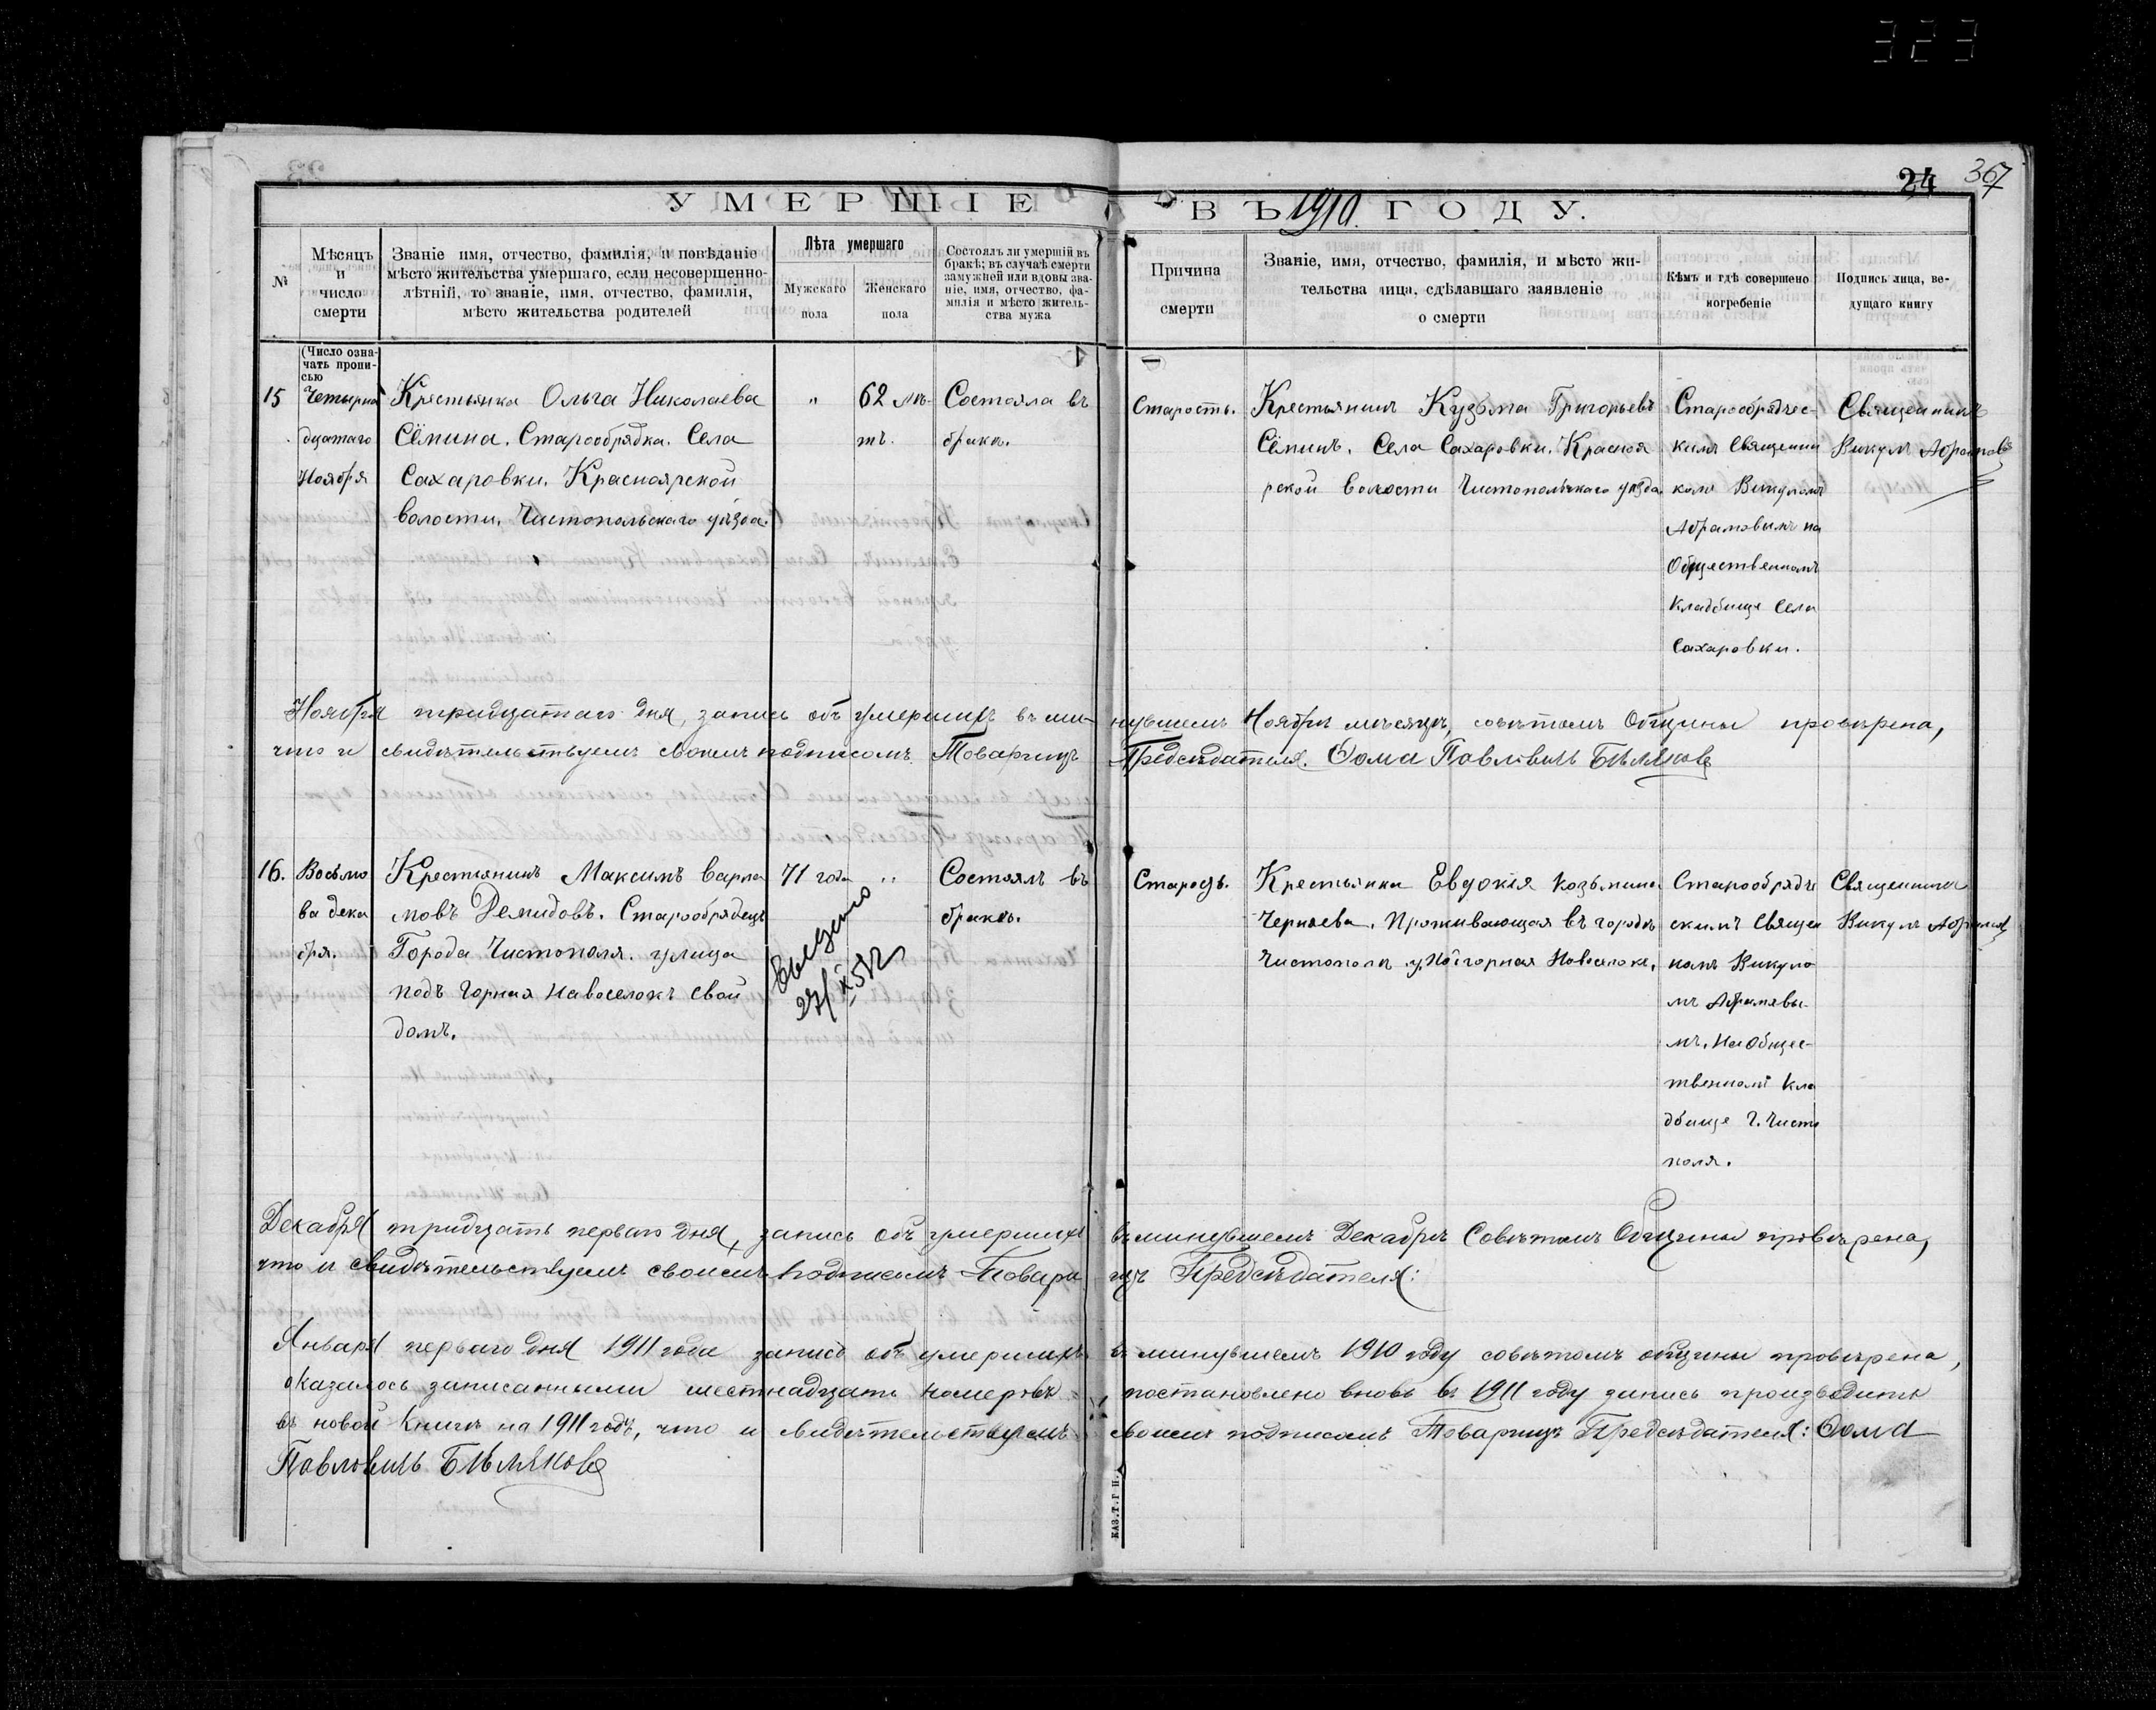 323
24 367
УМЕРШІЕ ВЪ 1910 ГОДУ.
№
Мѣсяцъ и число смерти
Званіе имя, отчество, фамилія, и повѣданіе
мѣсто жительства умершаго, если несовершенно-
лѣтній, то званіе, имя, отчество, фамилія,
мѣсто жительства родителей
Лѣта умершаго
Мужскаго пола
Женскаго пола
Состоялъ ли умершій въ
бракѣ; въ случаѣ смерти
замужней или вдовы зва-
ніе, имя, отчество, фа-
милія и мѣсто житель-
ства мужа
Причина
смерти
Званіе, имя, отчество, фамилія, и мѣсто жи-
тельства лица, сдѣлавшаго заявленіе
о смерти
Кѣмъ и гдѣ совершено
погребеніе
Подпись лица, ве-
дущаго книгу
(Число озна-
чать пропи-
сью
15
Четырна
дцатаго
Ноября
Крестьянка Ольга Николаева
Сёмина. Старообрядка. Села
Сахаровки. Красноярской
волости. Чистопольскаго уѣзда.
"
62 лѣ-
тъ.
Состояла въ
бракѣ.
Старость.
Крестьянинъ Кузьма Григорьевъ
Сёминъ. Села Сахаровки. Красноя
рской волости Чистопольскаго уѣзда.
Старообрядчес-
кимъ Священни
комъ Викуломъ
Абрамовымъ на
Общественномъ
Кладбище Села
Сахаровки.
Священникъ
Викулъ Абрамовъ
Ноября тридцатаго дня, запись объ умершихъ въ ми-
нувшемъ Ноябрѣ мѣсяцѣ, совѣтомъ Общины провѣрена,
что и свидѣтельствуемъ своемъ подписомъ. Товарищъ
Предсѣдателя. Ѳома Павловичъ Бѣляковъ
16.
Восьмо
ва дека
бря.
Крестьянинъ Максимъ Варла
мовъ Демидовъ. Старообрядецъ
Города Чистополя. улица
подъ Горная Навоселокъ свой
домъ.
71 года
"
27/X 51
Состоялъ въ
бракѣ.
Старость.
Крестьянка Евдокія Козьмина
Черняева. Проживающая въ городѣ
Чистополѣ у. Подгорная Новоселокъ.
Старообрядче
скимъ Священ
номъ Викуло
мъ Абрамовы-
мъ. На Общес-
твенномъ Кла
дбище Г. Чисто
поля.
Священникъ
Викулъ Абрамовъ
Декабря тридцать перваго дня, запись объ умершихъ
въ минувшемъ Декабрѣ Совѣтомъ Общины провѣрена,
что и свидѣтельствуемъ своемъ подписомъ Товари
щъ Предсѣдателя:
Января перваго дня 1911 года запись объ умершихъ
въ минувшемъ 1910 году совѣтомъ общины провѣрена,
оказалось записанными шестнадцать номеровъ
постановлено вновь въ 1911 году запись производить
въ новой Книгѣ на 1911 годъ, что и свидѣтельствуемъ
своемъ подписомъ Товарищъ Предсѣдателя: Ѳома
Павловичъ Бѣляковъ
КАЗ. Т. Г. П.